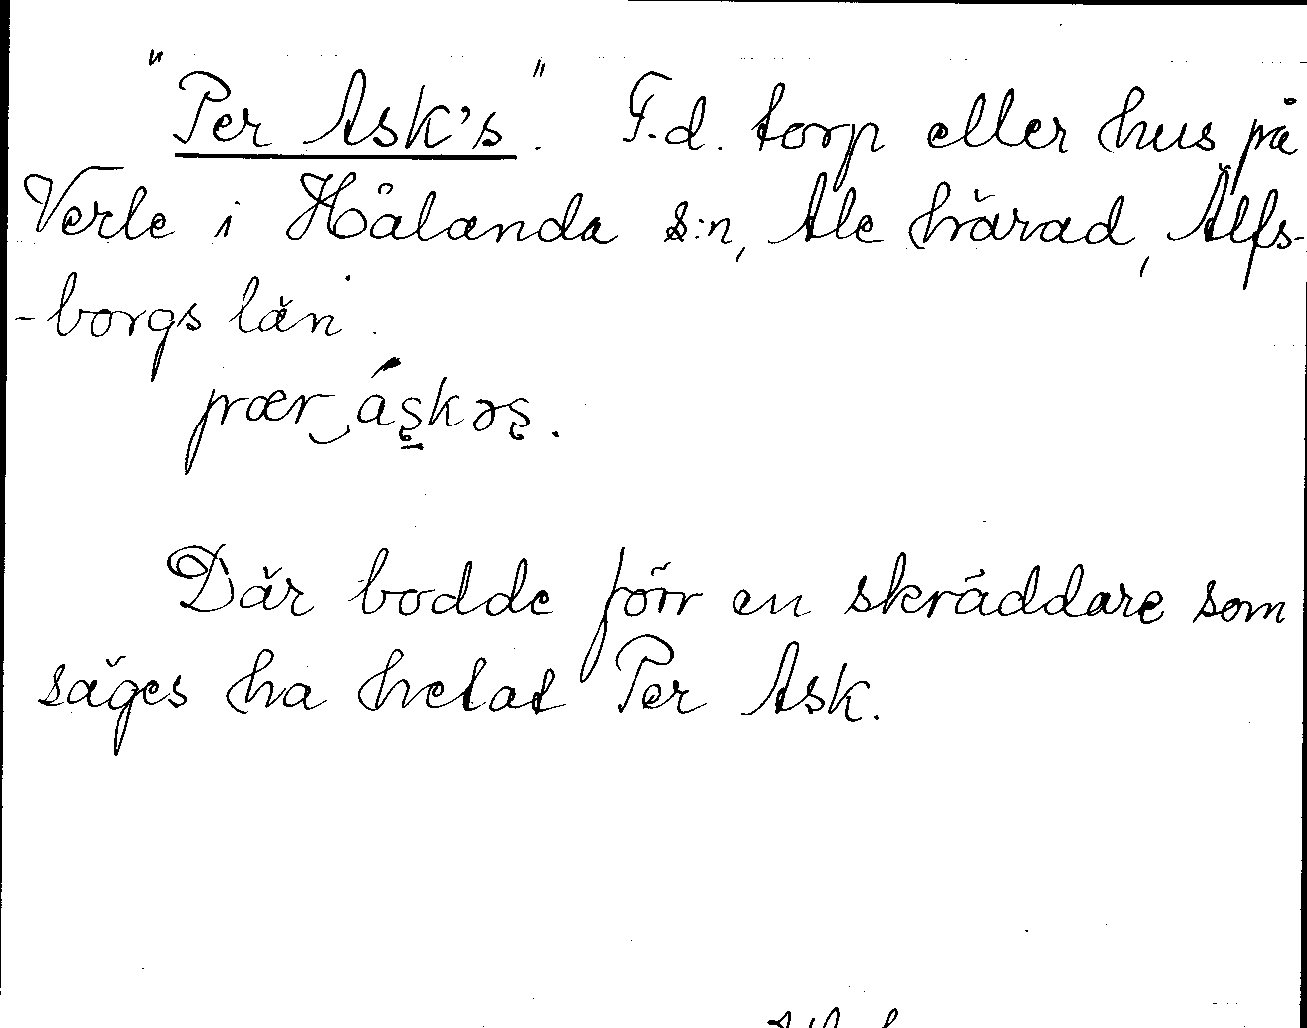 "Per Ask's". F.d. torp eller hus på
Verle i Hålanda s:n, Ale härad, Älfs-
-borgs län.
pær‿áʂkəʂ.
Där bodde förr en skräddare som
säges ha hetat Per Ask.